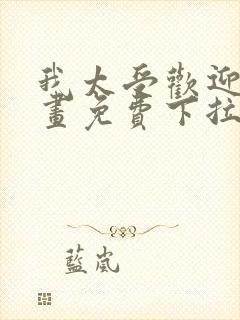 我太受歡迎
畫免費下拉
藍嵐